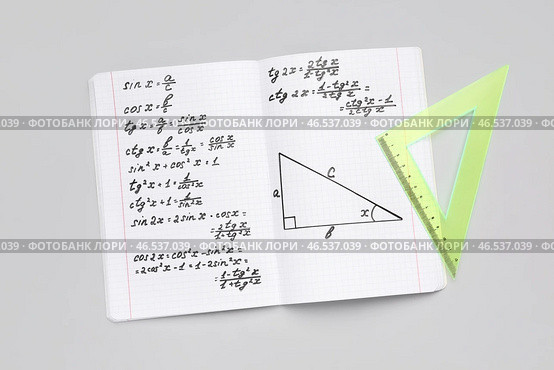 sin x = a/c
cos x = b/c
tg x = a/b = sin x/cos x
ctg x = b/a = 1/tg x = cos x/sin x
sin² x + cos² x = 1
tg² x + 1 = 1/cos² x
ctg² x + 1 = 1/sin² x
sin 2x = 2 sin x · cos x =
= 2 tg x/1 - tg² x
cos 2x = cos² x - sin² x =
= 2 cos² x - 1 = 1 - 2 sin² x =
= 1 - tg² x/1 + tg² x
tg 2x = 2 tg x/1 - tg² x
ctg 2x = 1 - tg² x/2 tg x =
= ctg² x - 1/2 ctg x
a
c
x
b
46.537.039 - ФОТОБАНК ЛОРИ - 46.537.039 - ФОТОБАНК ЛОРИ - 46.537.039
.039 - ФОТОБАНК ЛОРИ - 46.537.039 - ФОТОБАНК ЛОРИ - 46.537.039